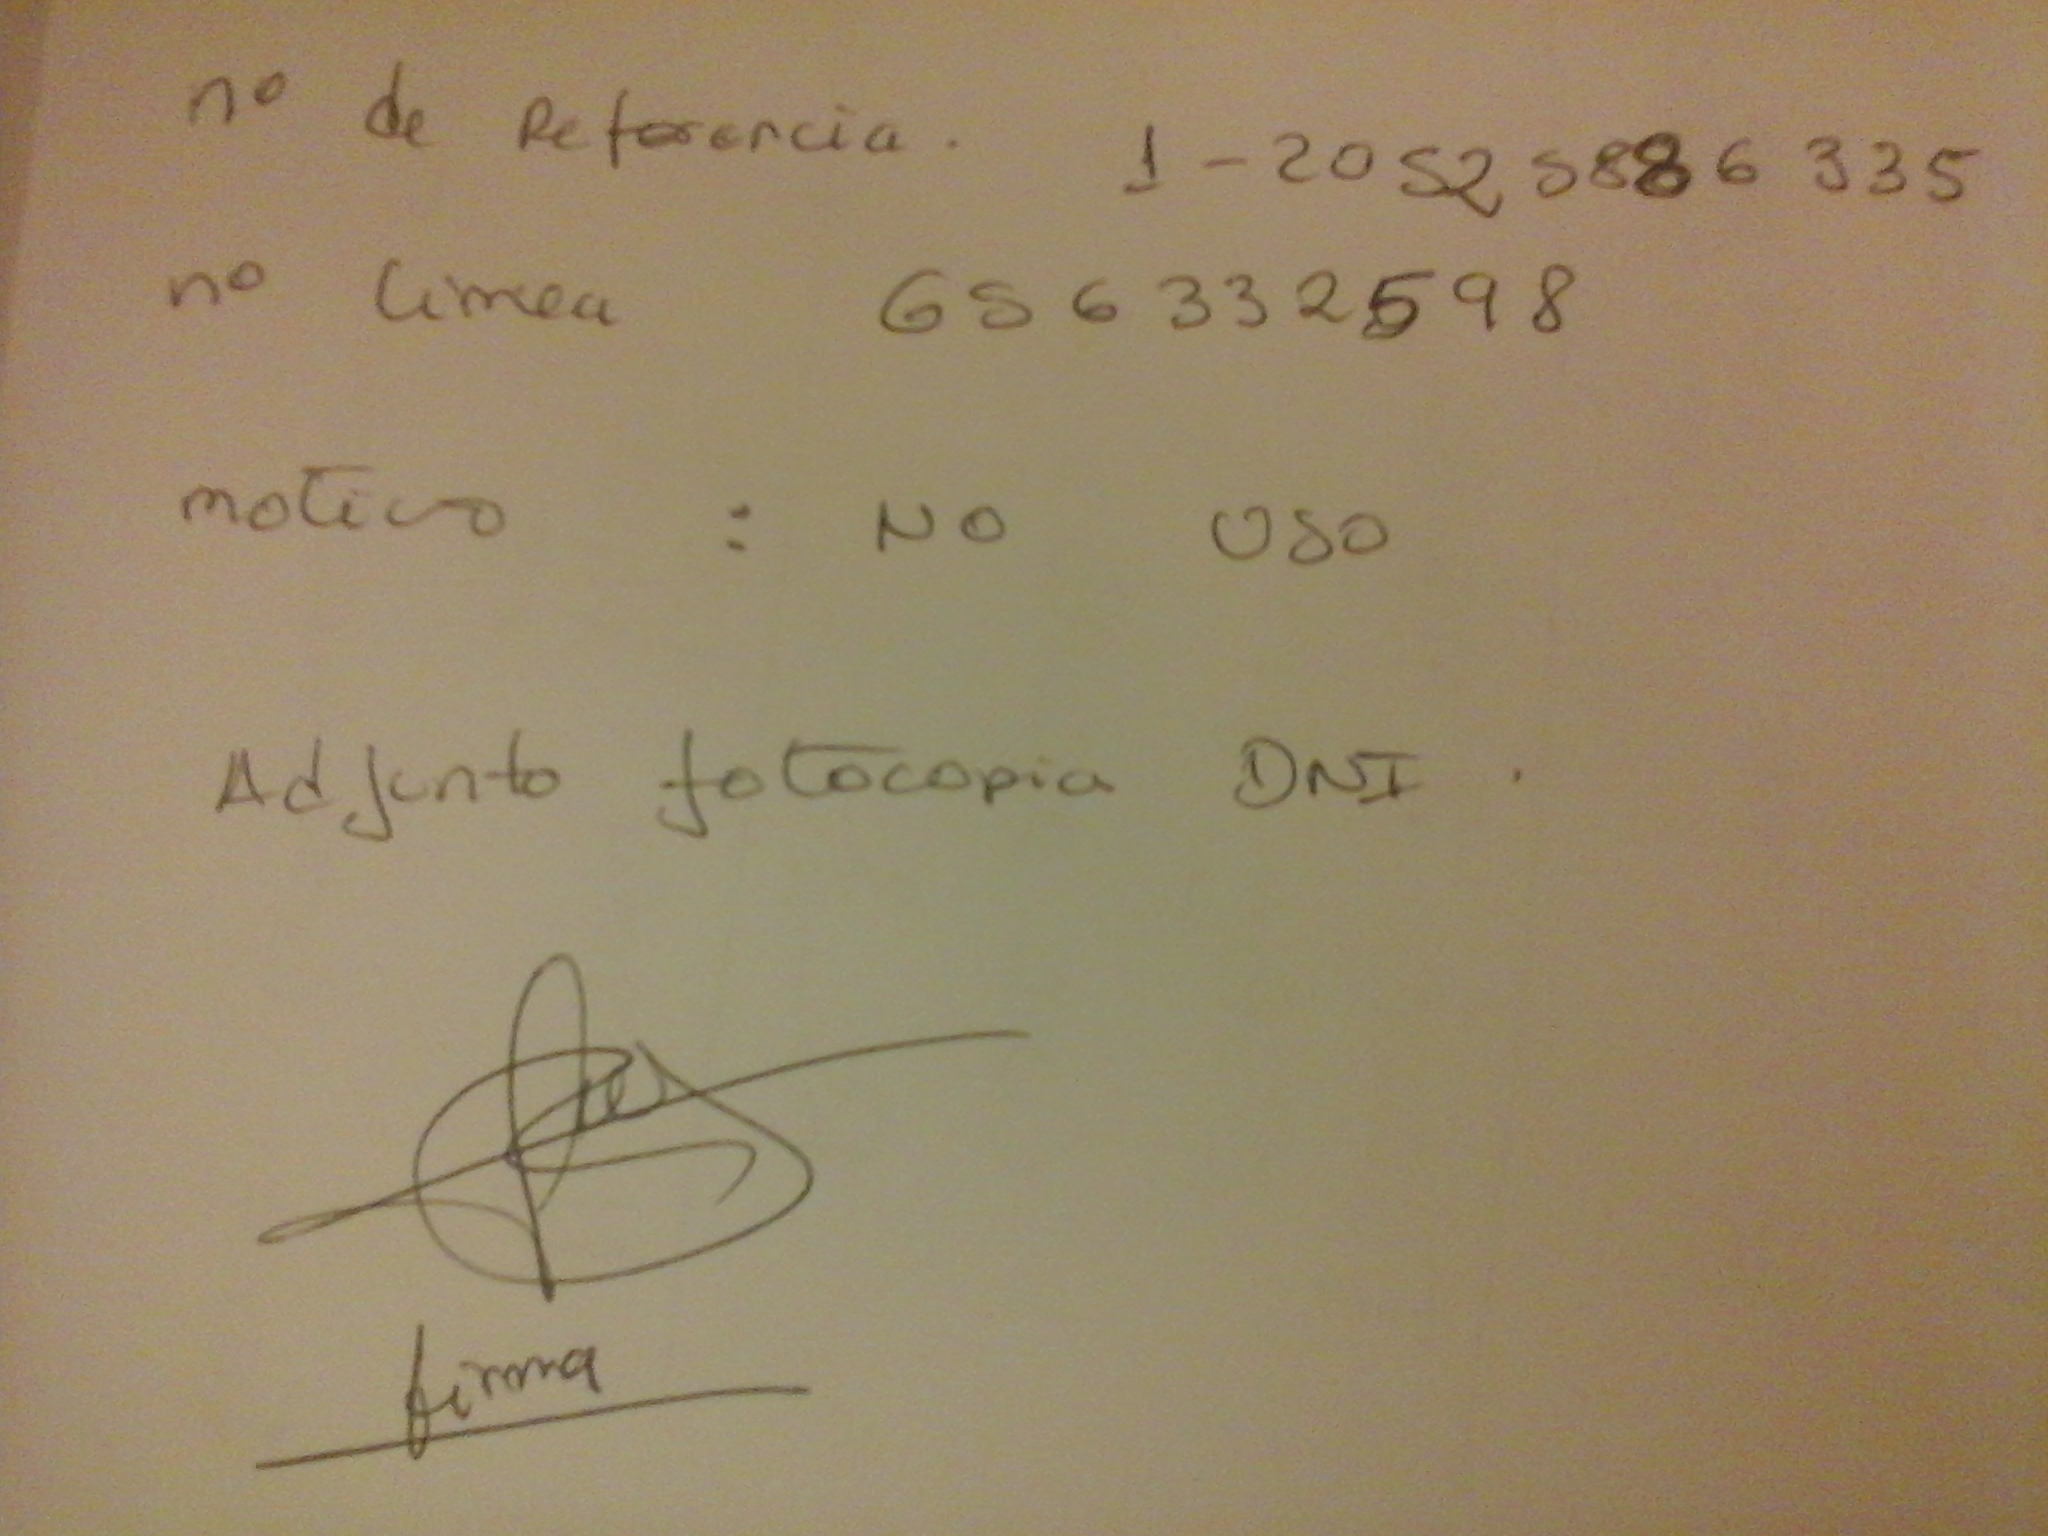 nº de Referencia. 1-20525886335
nº linea 656332598
motivo : NO USO
Adjunto fotocopia DNI.
firma